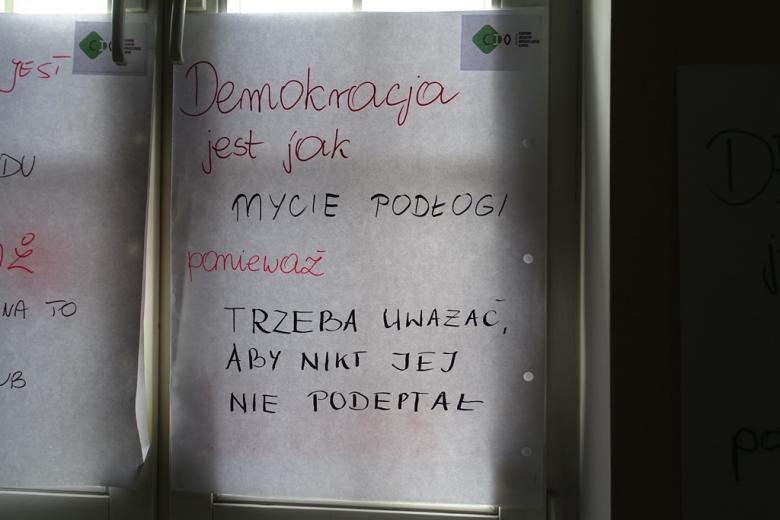 JEST
DU
NA TO
UB
CDO
Demokracja
jest jak
MYCIE PODŁOGI
ponieważ
TRZEBA UWAŻAĆ,
ABY NIKT JEJ
NIE PODEPTAŁ
D
po